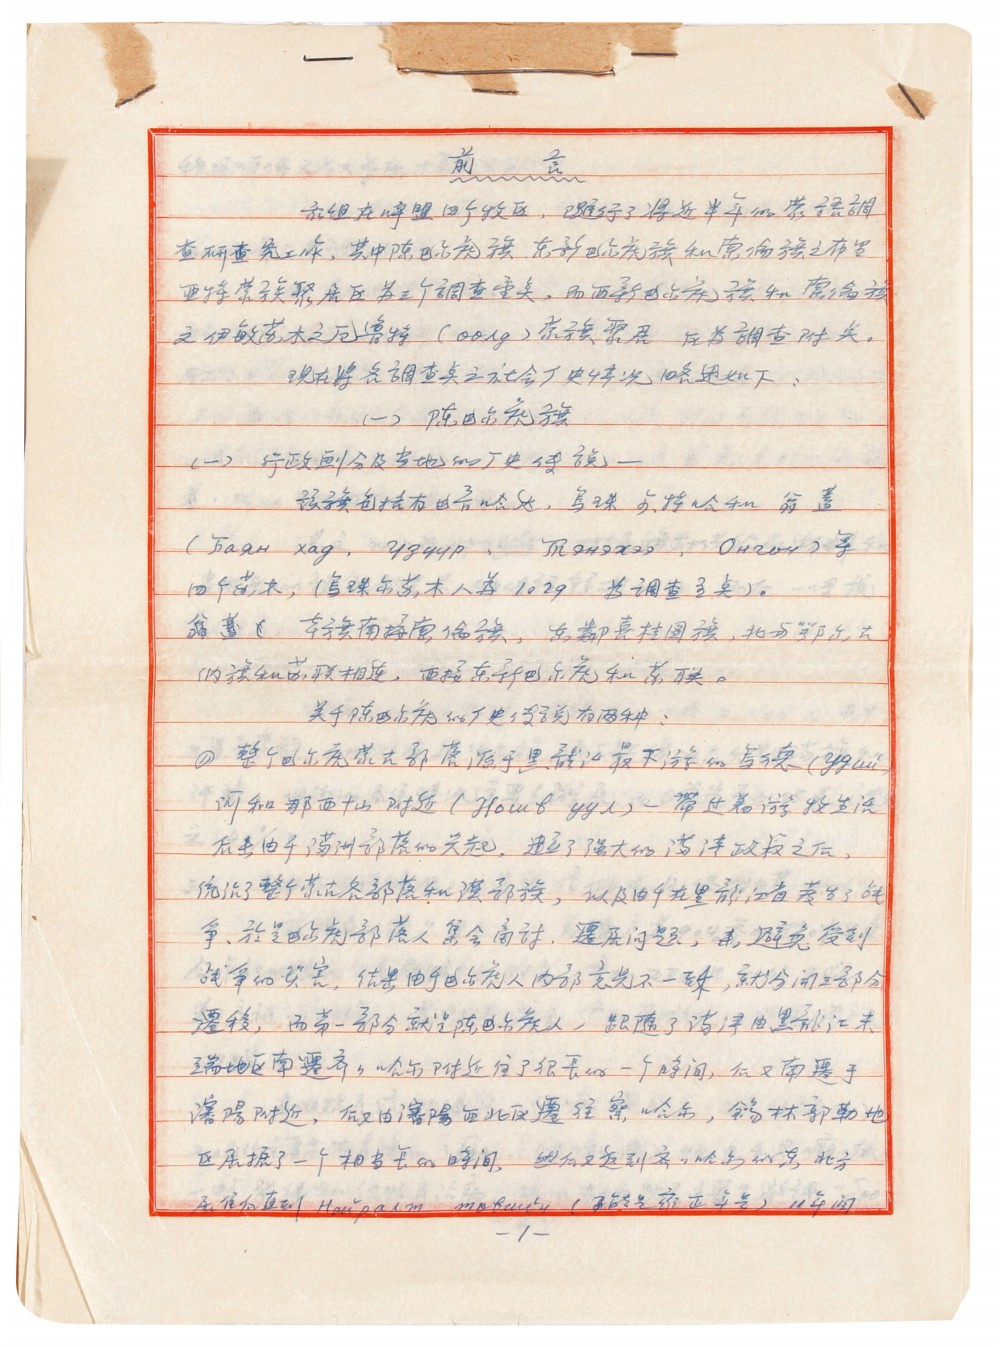 前 言
我组在呼盟四个牧区，进行了将近半年的蒙语調
查研查究工作，其中陈巴尔虎旗、东新巴尔虎旗和索倫旗之布里
亚特蒙族聚居区为三个調查重点，而西新巴尔虎旗和索倫旗
之伊敏苏木之厄鲁特（ООлд）蒙族聚居 区为調查附点。
現在将各調查点之社会历史情况略述如下：
（一）陈巴尔虎旗
（一）行政画分及当地的历史传說—
該旗包括有巴音哈达，烏珠 特哈和 翁 盖
（Баян хад， Үзүүр、 Тэнэхээ，Онгон）等
四个苏木，（烏珠尔苏木人为1029 为調查主点）。
本旗南接索倫旗，东鄰喜桂图旗，北与鄂尔古
納旗和苏联相连，西接东新巴尔虎和苏联。
关于陈巴尔虎的历史传說有两种：
① 整个巴尔虎蒙古部落源于黑龍江最下游的烏德（Удий）
河和那西山附近（Нашв уул）一帶过着游牧生活
后来由于满洲部落的兴起，建立了强大的满清政权之后，
统治了整个蒙古各部落和漢部族，以及由于在黑龍江省发生了战
争、於是巴尔虎部落人集会商討、遷居问题，来避免受到
战争的灾害，结果由于巴尔虎人内部意見不一致，就分开三部分
遷移，而第一部分就是陈巴尔虎人，跟随了满清由黑龍江末
端地区南遷齐齐哈尔附近住了很長的一个時间，后又南遷于
瀋陽附近，后又由瀋陽西北区遷往察哈尔，錫林郭勒地
区居振了一个相当长的時间，然后又返到齐齐哈尔的东北方
居住后直到 Найралт төвийн（ 是雍正年号）11年间
—1—